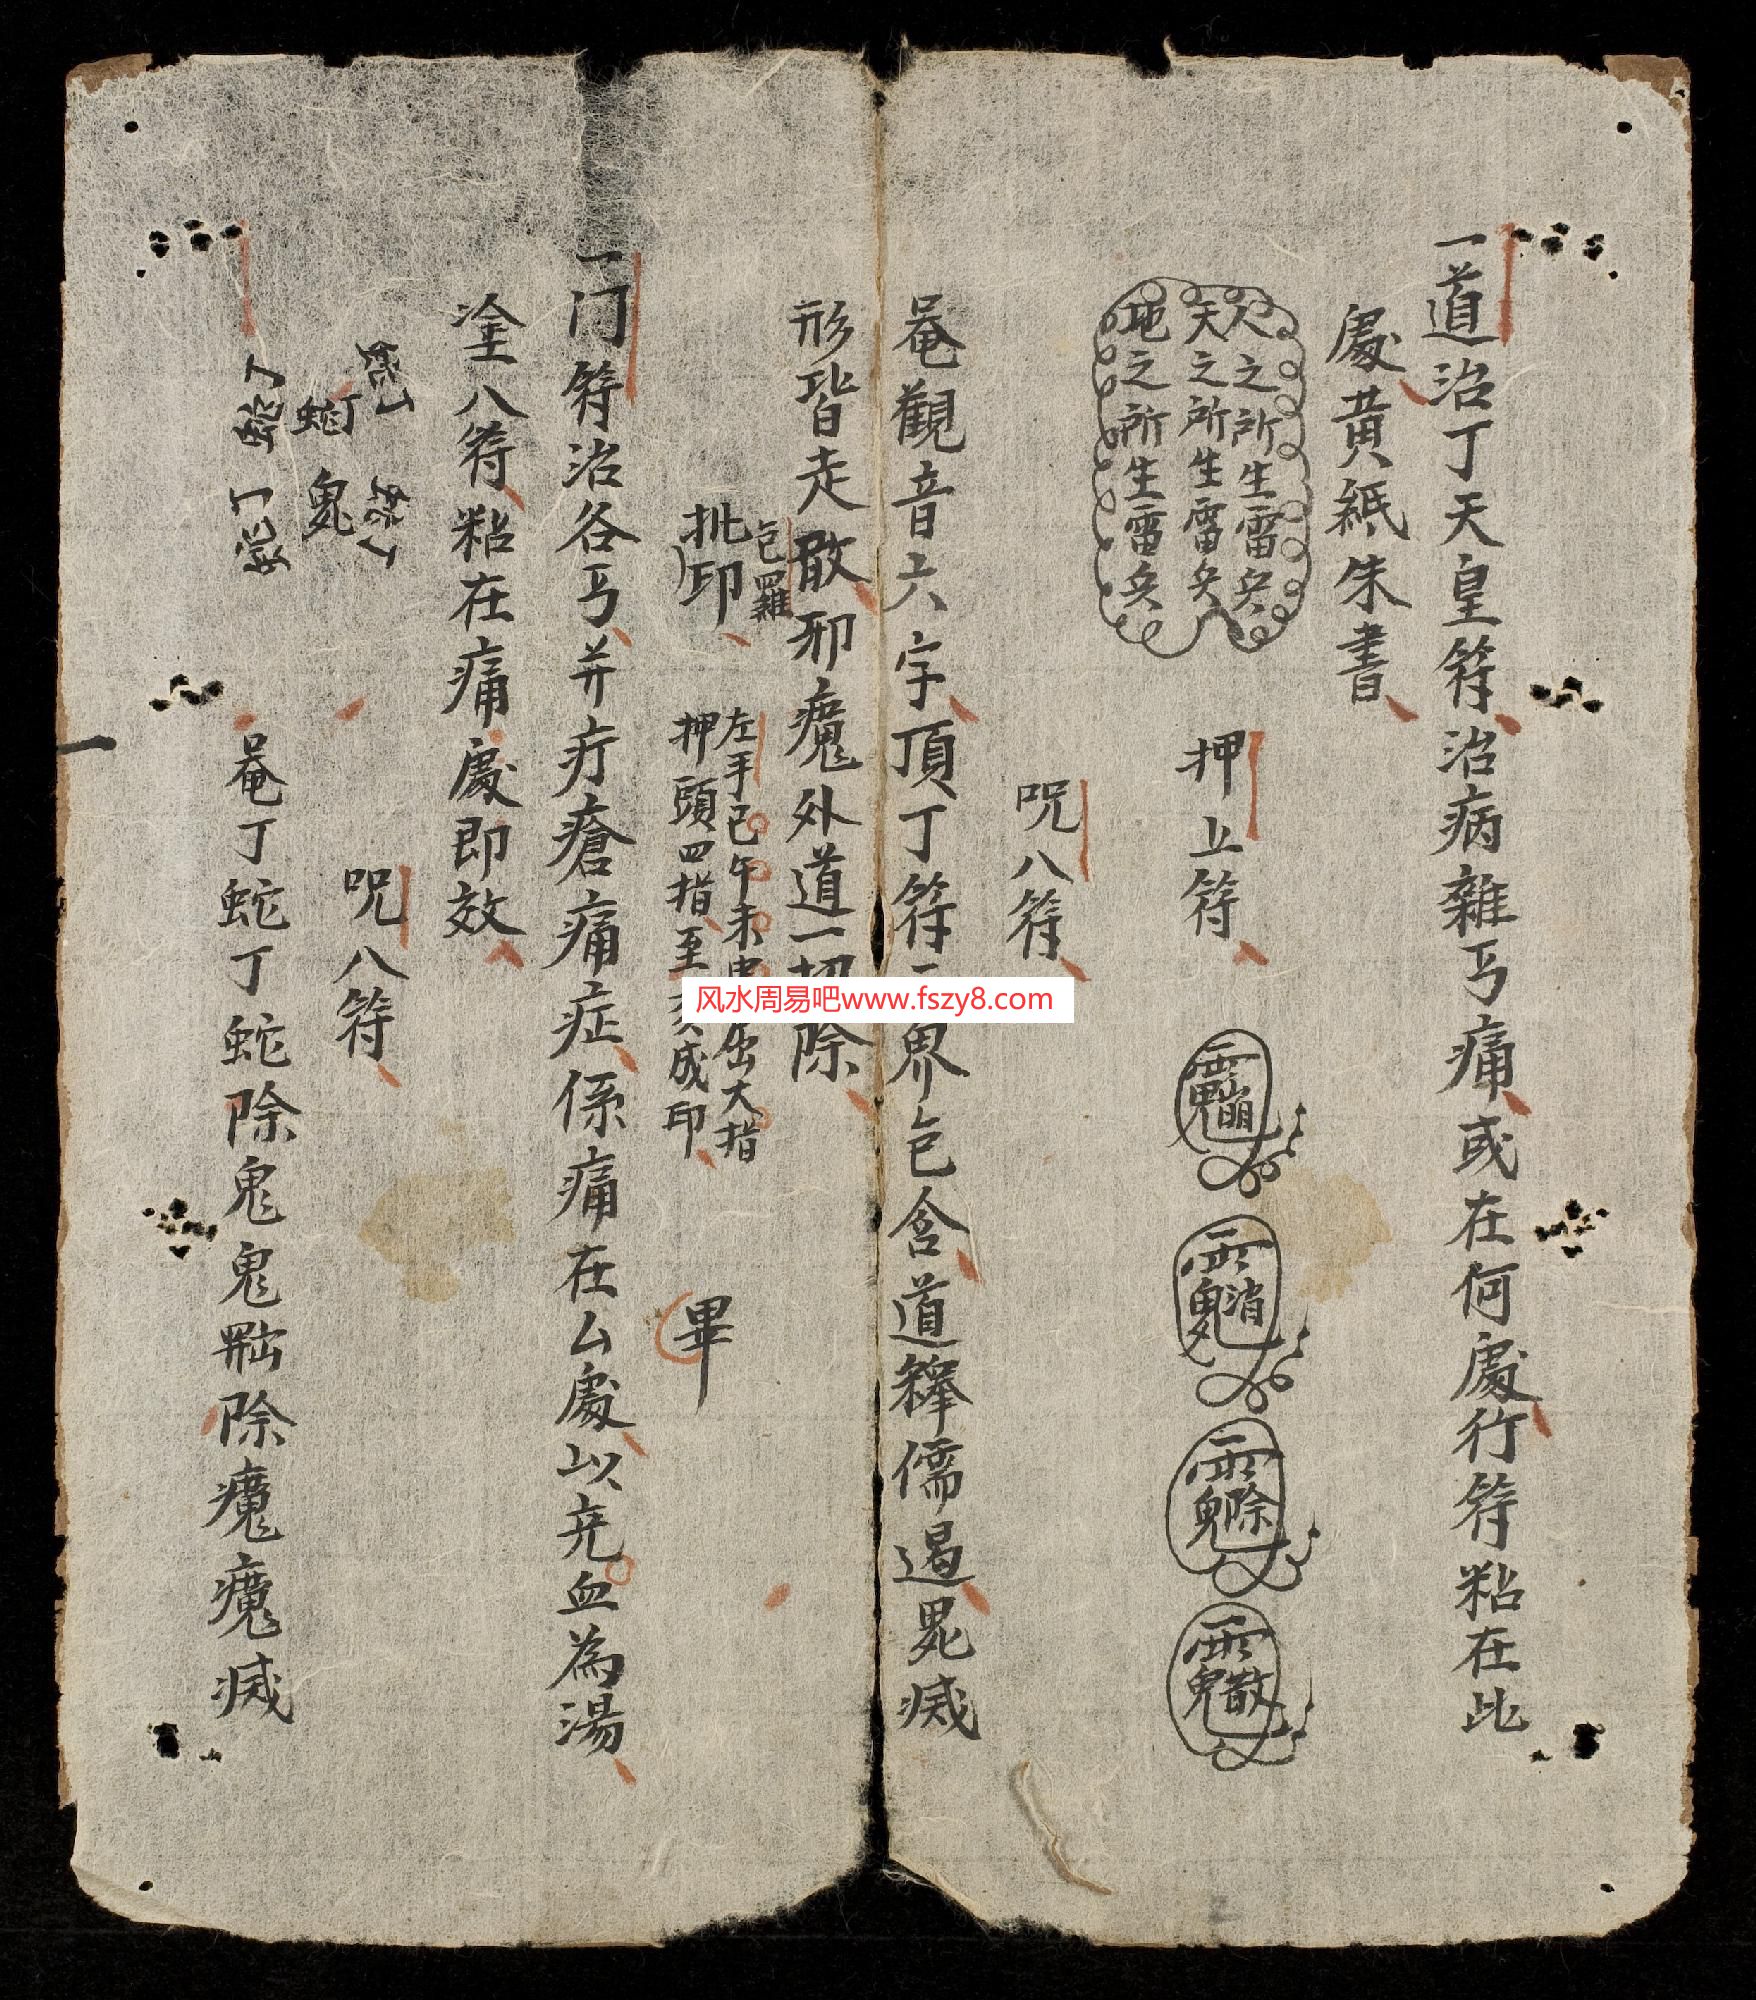 一道治丁天皇符治病雜丐痛或在何處行符粘在此
處黃紙朱書
人之所生雷兵
天之所生雷兵
地之所生雷兵
押立符
咒八符
唵觀音六字頂丁符
界包含道釋儒遏鬼滅
形皆走散邪魔外道一切除
包羅
批印
左手巳午未申
出大指
押頭四指至亥成印
畢
一门符治各丐并疔瘡痛症係痛在厶處以充血為湯
塗八符粘在痛處即效
鬼
咒八符
唵丁蛇丁蛇除鬼鬼
除魔魔滅
风水周易吧www.fszy8.com